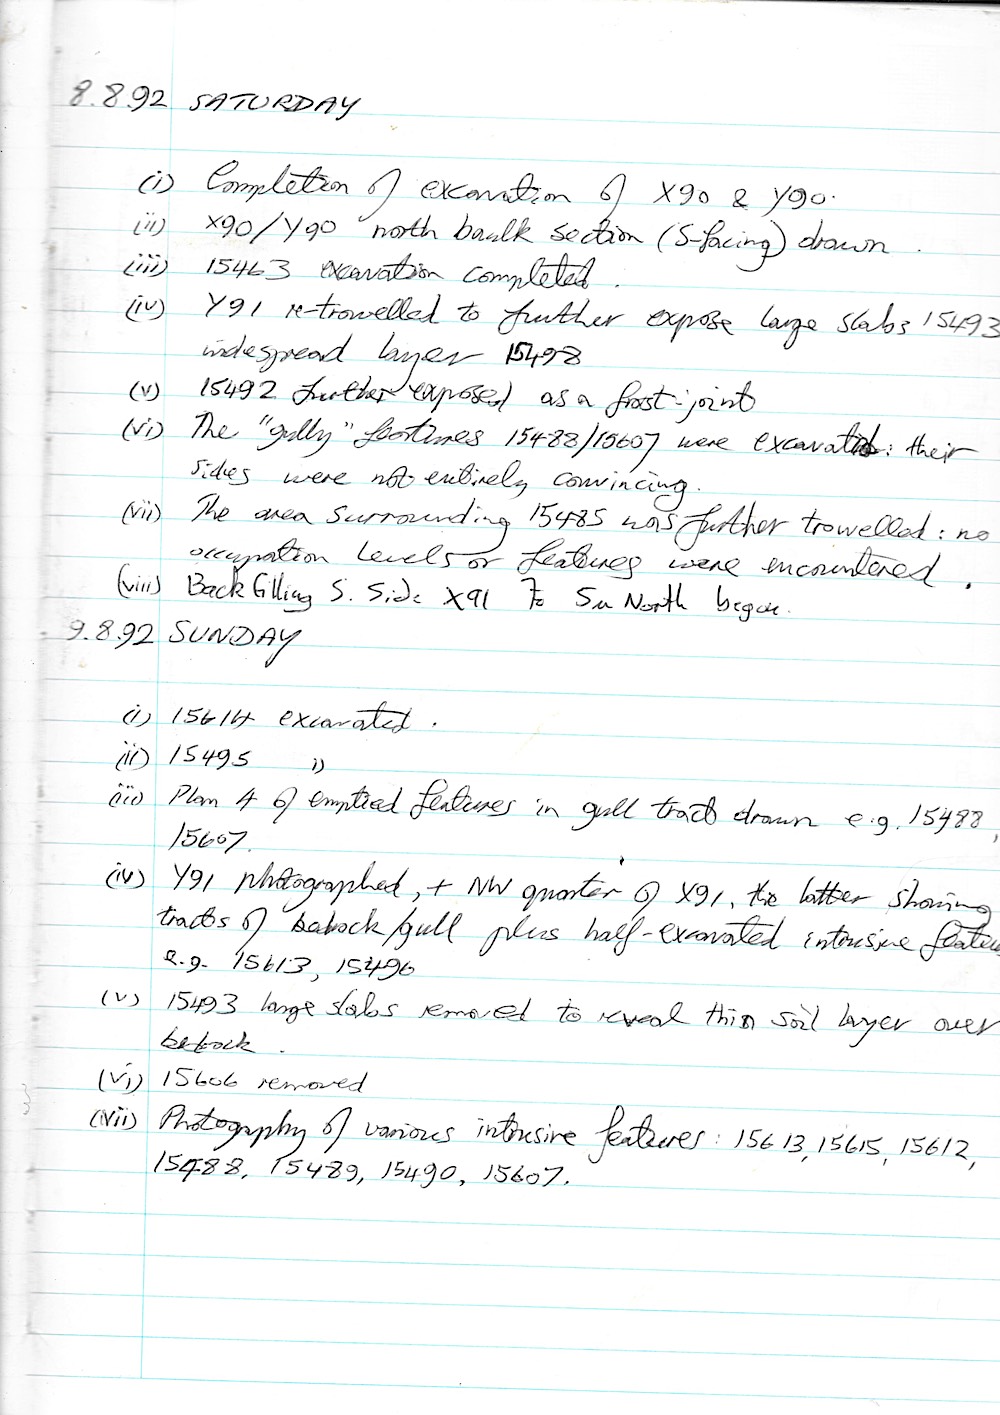 8.8.92 SATURDAY
(i) Completion of excavation of X90 & Y90.
(ii) X90/Y90 north baulk section (S-facing) drawn.
(iii) 15463 excavation completed.
(iv) Y91 re-trowelled to further expose large slabs 15493
widespread layer 15498
(v) 15492 further exposed as a frost-joint
(vi) The "gully" features 15488/15607 were excavated: their
sides were not entirely convincing.
(vii) The area surrounding 15485 was further trowelled: no
occupation levels or features were encountered.
(viii) Backfilling S. Side X91 To 5m North began.
9.8.92 SUNDAY
(i) 15614 excavated.
(ii) 15495 "
(iii) Plan 4 of emptied features in gull tract drawn e.g. 15488,
15607.
(iv) Y91 photographed, + NW quarter of X91, the latter showing
tracts of bedrock/gull plus half-excavated intrusive features
e.g. 15613, 15496
(v) 15493 large slabs removed to reveal thin soil layer over
bedrock.
(vi) 15606 removed
(vii) Photography of various intrusive features: 15613, 15615, 15612,
15488, 15489, 15490, 15607.